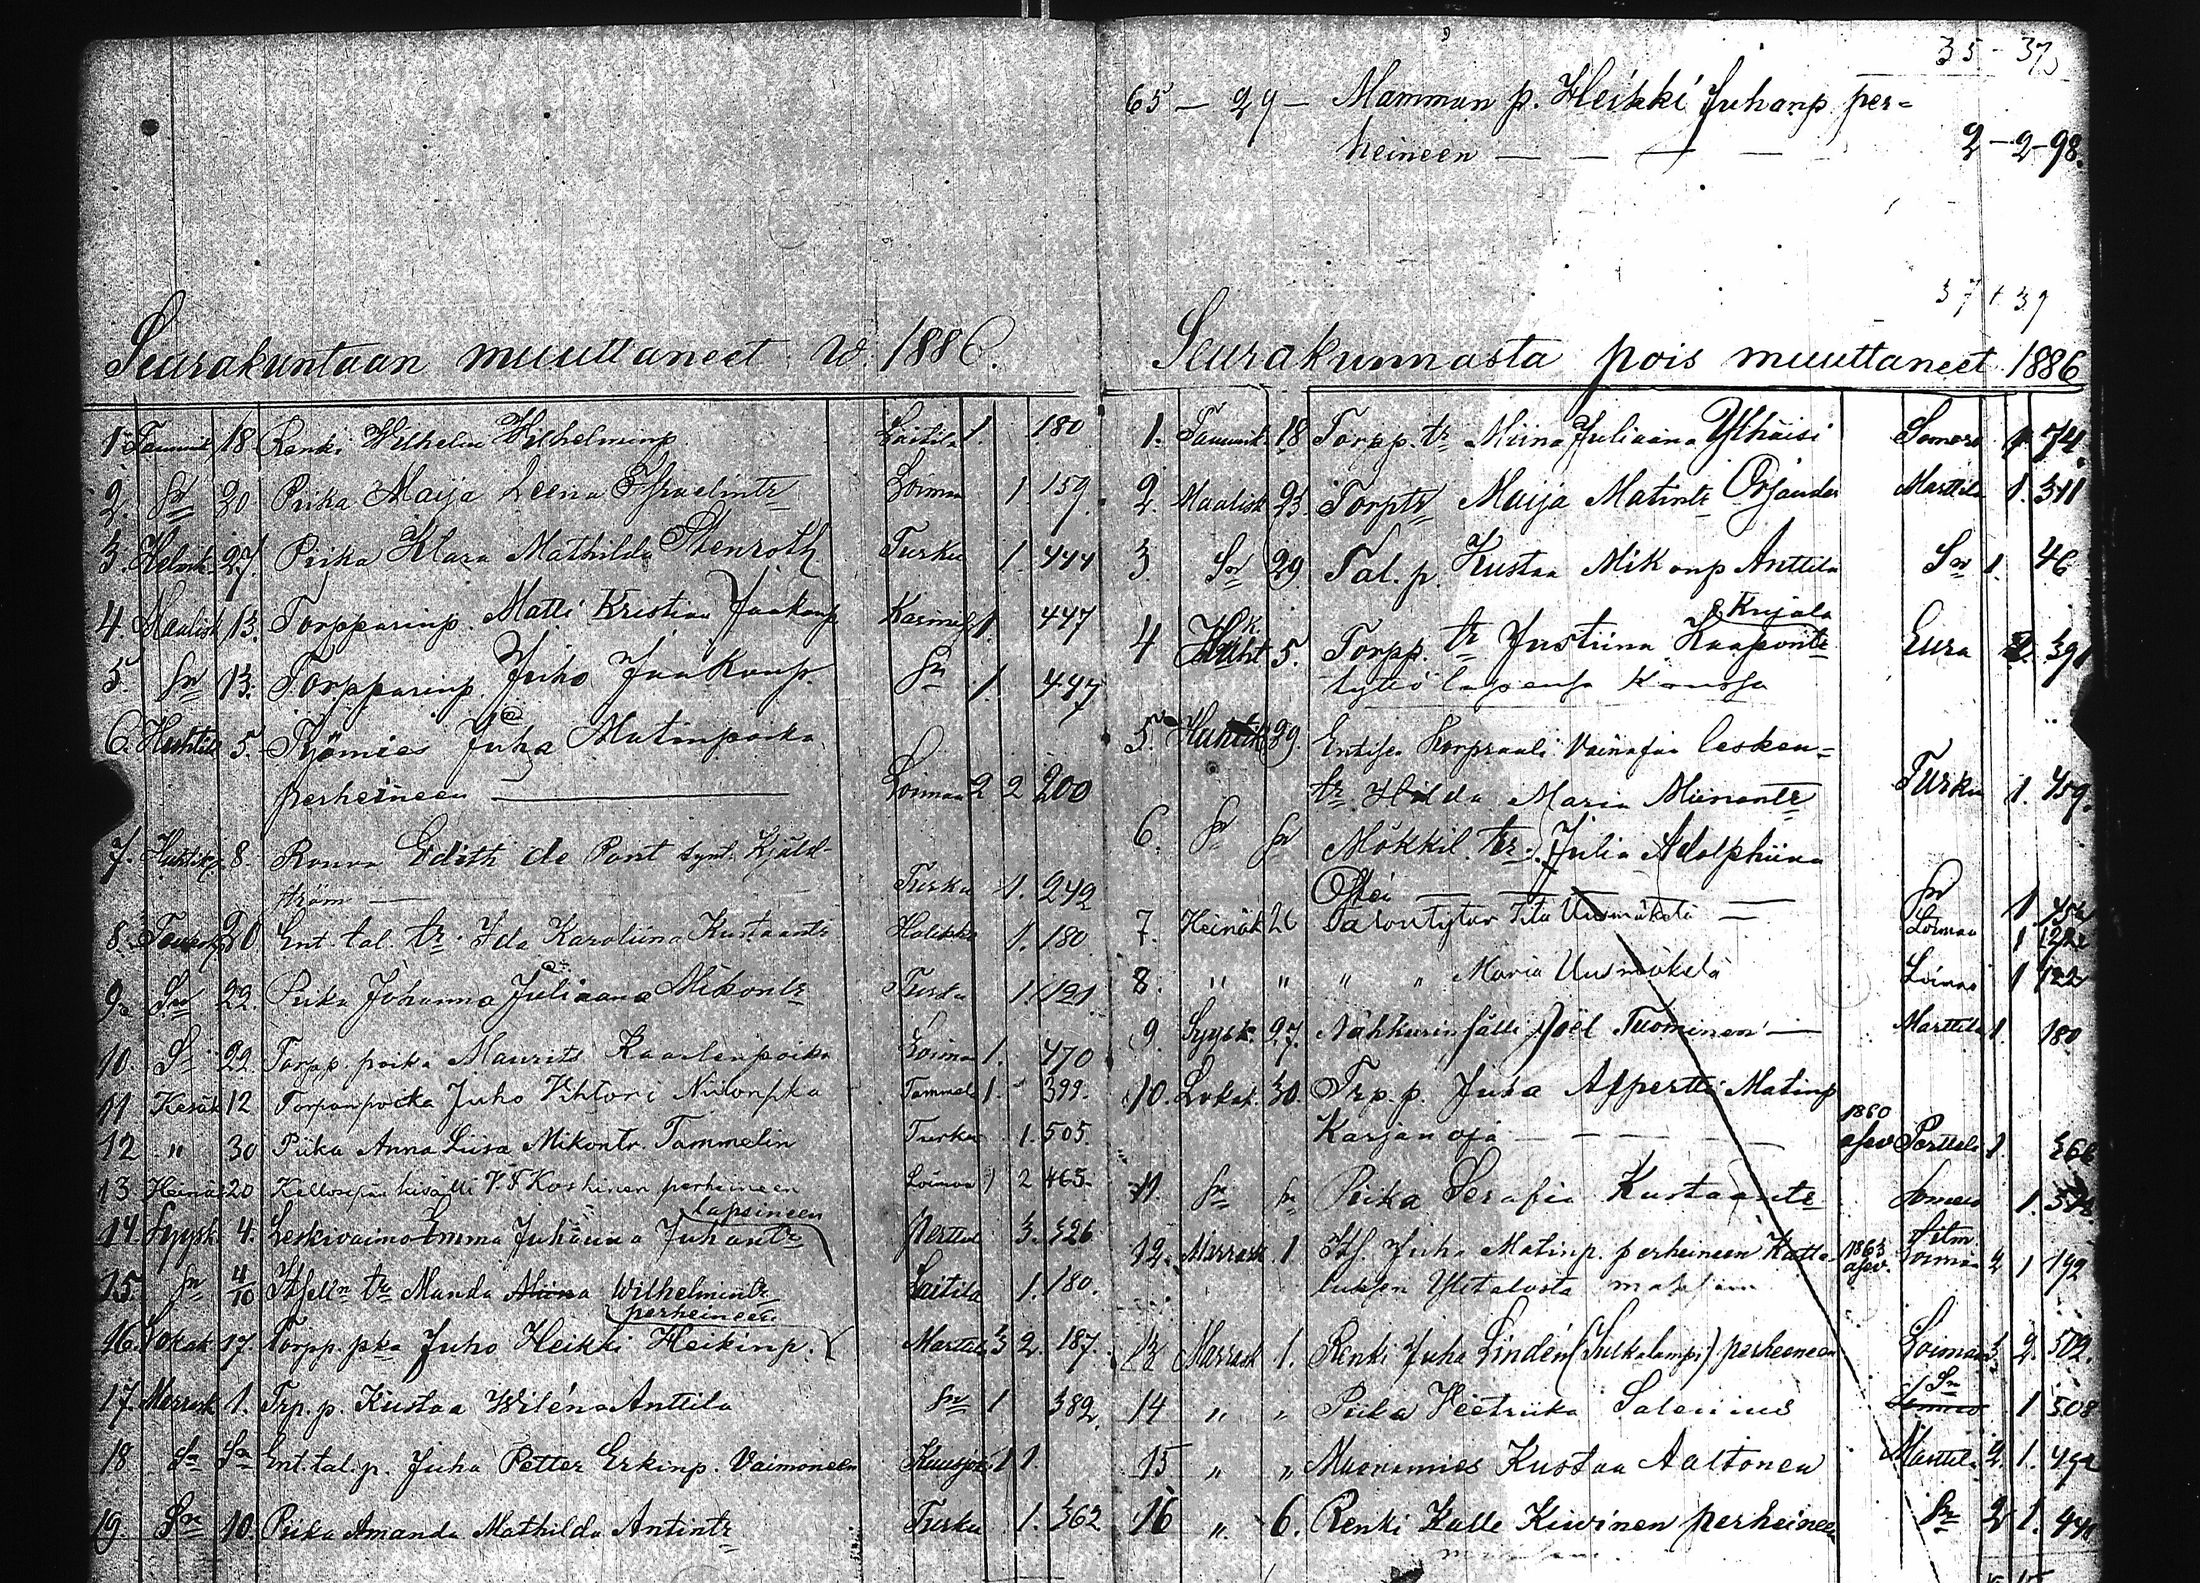 35-37
65 - 29 - Mamman p. Heikki Juhanp. per-
heineen — — — — 2-2-98.
37 + 39
Seurakuntaan muuttaneet w. 1886.
1. Tammik 18 Renki Wilhelm Wilhelminp. Laitila 1. 180
2. Sn 20 Piika Maija Leena Israelintr Loimaa 1 159.
3. Helmik 27. Piika Klara Mathilda Stenroth Turku 1. 444
4. Maalisk 13. Torpparinp. Matti Kristian Jaakonp 1. 447
5. Sn 13. Torpparinp. Juho Jaakonp. Sn 1. 447
6. Huhtik 5. Työmies Juha Matinpoika
perheineen — Loimaa 2 2 200
7. Huhtik. 8. Rouva Edith de Pont synt. Kjäld-
ström — Turku 1. 242
8. Toukok 20 Ent. tal. tr. Ida Karoliina Kustaantr Halikko 1. 180
9. Sn 22. Piika Johanna Juliaana Mikontr Turku 1. 121
10. Sn 22. Torpp. poika Maurits Kaarlenpoika Loimaa 1. 470
11 Kesäk 12 Torpanpoika Juho Vihtori Niilonpka Tammela 1. 399.
12 " 30 Piika Anna Liisa Mikontr. Tammelin Turku 1. 505.
13 Heinäk 20 Kellosepän kisälli V. F. Koskinen perheineen Loimaa 1 2 465
lapsineen
14. Syysk 4. Leskivaimo Emma Juhanna Juhantr Perttel 3. 326
15. Sn 4/10 Itsell. tr Manda Miina Wilhelmintr Laitila 1. 180.
perheineen
16. Lokak 17. Torpp. pka Juho Heikki Heikinp. Marttila 3 2. 187.
17. Marrask 1. Trp. p. Kustaa Wilén Anttila Sn 1 382
18 Sn Sn Ent. tal. p. Juha Petter Erkinp. Vaimoneen 1 1.
19. Sn 10. Piika Amanda Mathilda Antintr Turku 1. 362
Seurakunnasta pois muuttaneet 1886
1. Tammik. 18 Torpp. tr Miina Juliaana Ylhäisi Somero 1. 74.
2. Maalisk 23. Torptr Maija Matintr Orjander Marttila 1. 311
3. Sn 29 Tal. p. Kustaa Mikonp Anttila Sn 1. 46
Kujala
4 Huht 5. Torpp. tr Justiina Kaapontr Eura 2. 391
tyttö lapsensa kanssa
5. Huhtik 29. Entisen Korpraali Vainajan lesken-
tr. Hilda Maria Miinantr Turku 1. 459.
6. Sn Sn Mökkil. tr. Julia Adolphiina
— — — Sn 1
7. Heinäk 26 Talontytar Uusmäkelä — Loimaa 1 122
8. " " " " Maria Uusmäkelä Loimaa 1 122
9. Syysk. 27. Nahkurinsälli Joel Tuominen — Marttila 1. 180
10. Lokak. 30. Trp. p. Juha Alpertti Matinp
Karjanoja — — — 1860 asev Perttelä 1.
11 Sn Sn Piika Serafia Kustaantr Somero 1.
12. Marrask 1. Juha Matinp. perheineen 1863 asev. Loimaa 2 1 192
Ylitalosta
13 Marrask 1. Renki Juha Lindén (Sulkalampi) perheineen Loimaa 3 2. 502.
14 " " Piika Veetriika Salenius Sn 1 508
15 " " Muonamies Kustaa Aaltonen Marttila 2. 1. 492
16 " 6. Renki Kalle Kiwinen perheineen Sn 2 1.